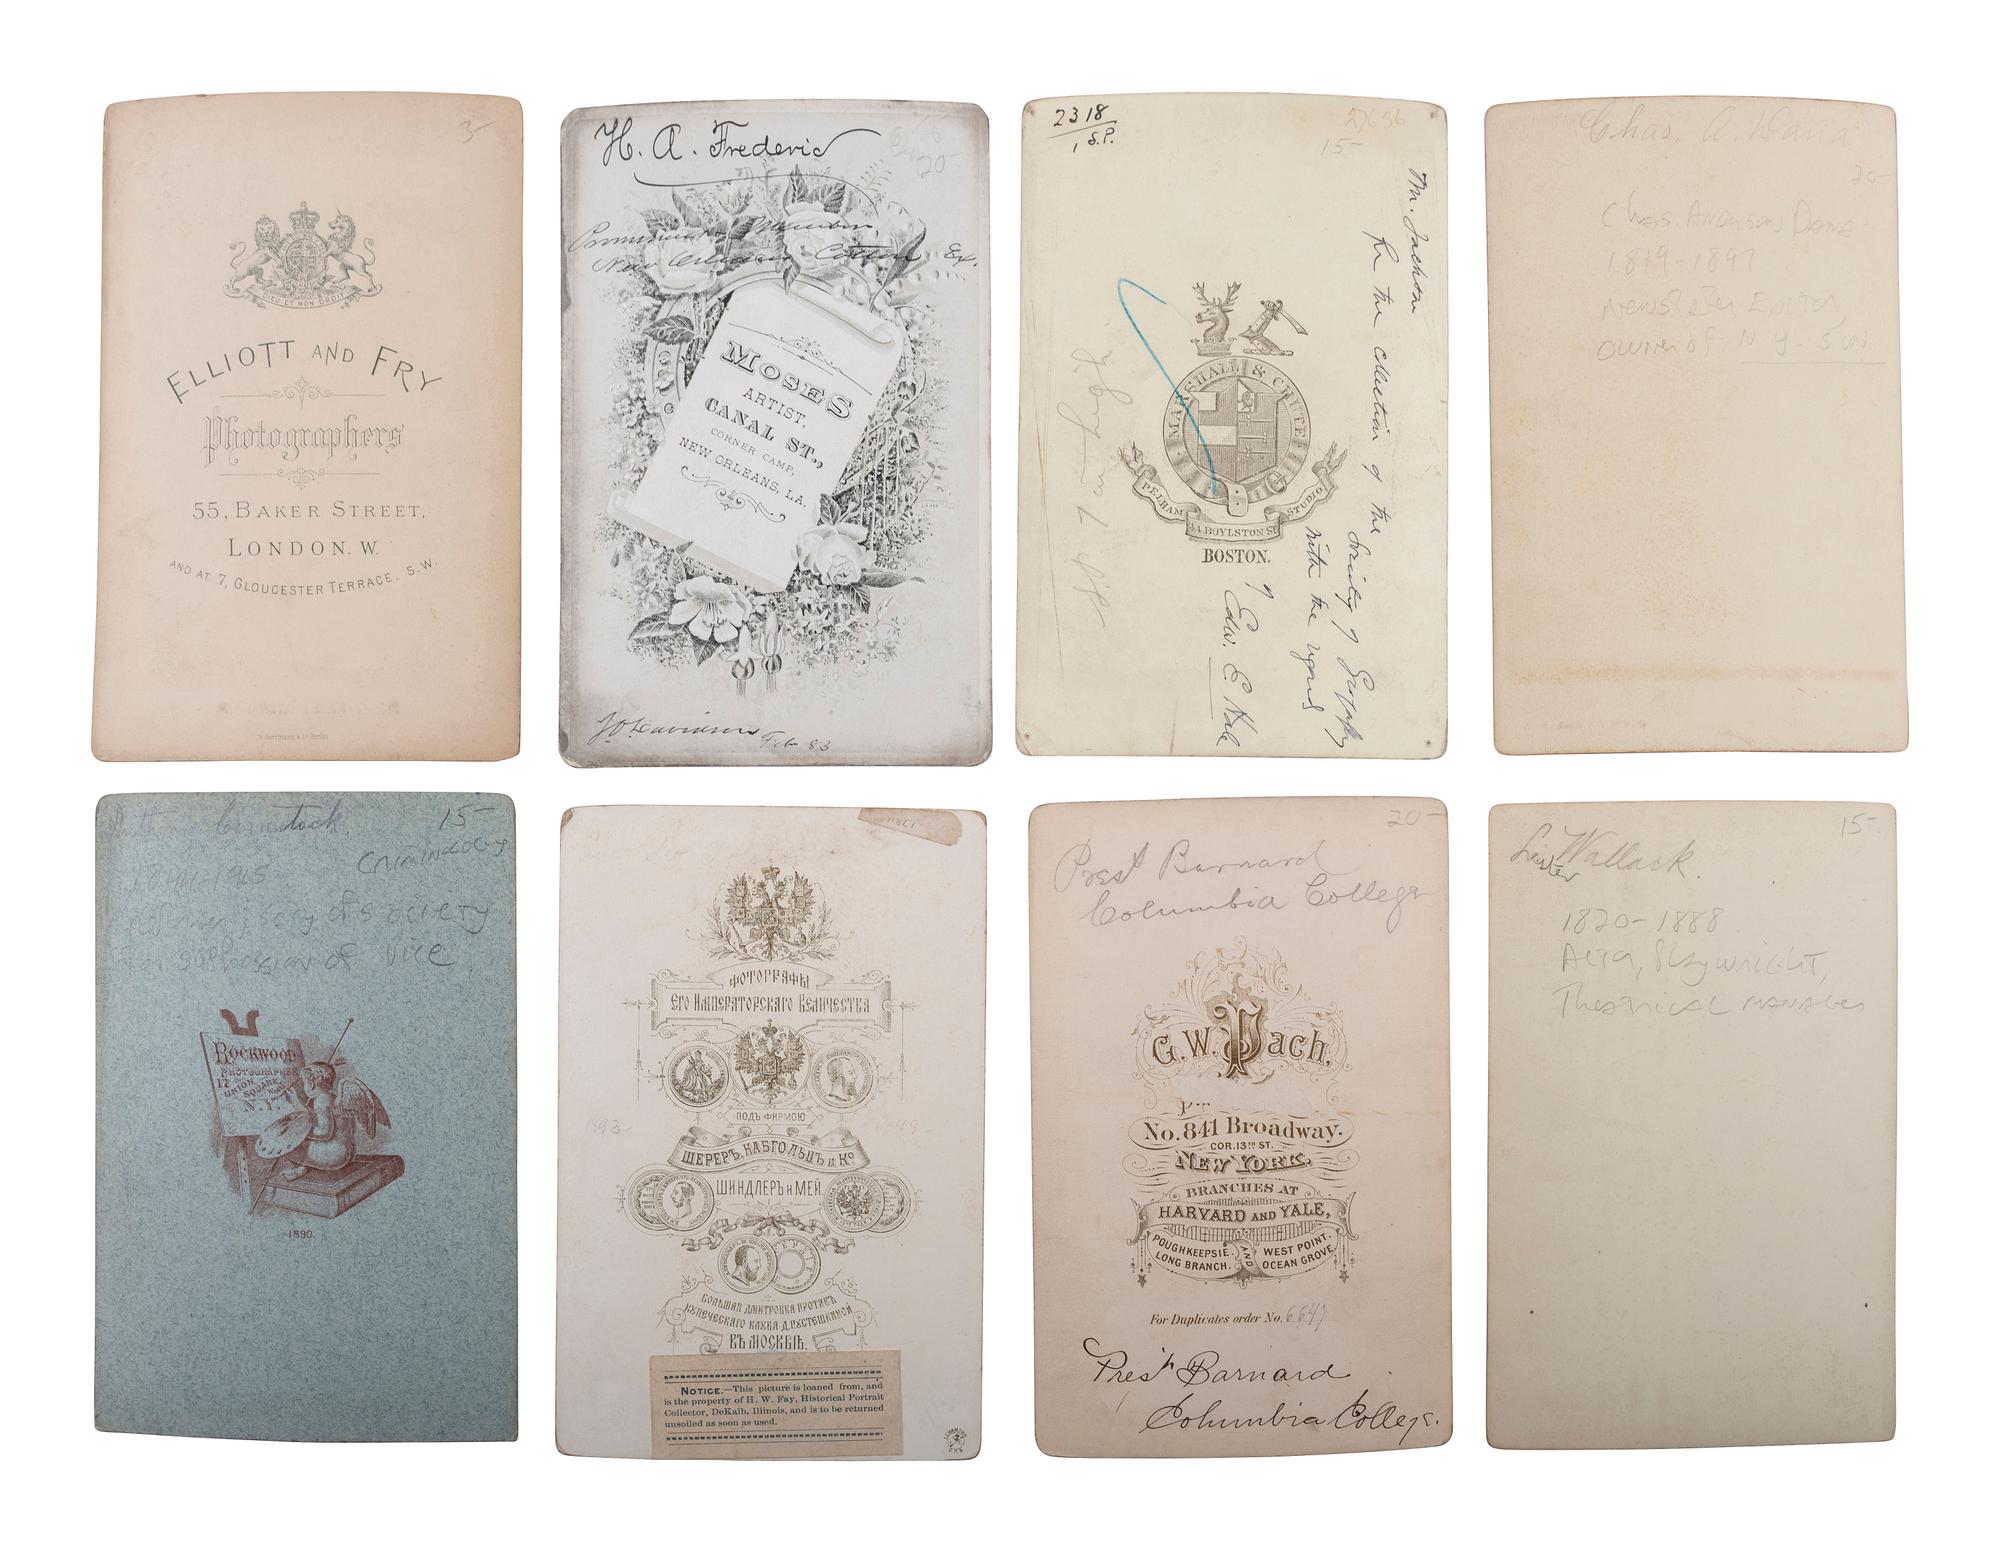 3-
DIEU ET MON DROIT
ELLIOTT AND FRY
Photographers
55, BAKER STREET,
LONDON. W.
AND AT 7, GLOUCESTER TERRACE. S.W.
H. A. Frederic
20-
Prominent Member,
New Orleans Cotton Ex.
MOSES
ARTIST,
CANAL ST.,
CORNER CAMP,
NEW ORLEANS, LA.
Feb 83
2318
1 S.P.
27636
15-
M. Jackson
For the collection of the
Society of
with the regard
of Edw. E Hale
MARSHALL & CHUTE
PELHAM STUDIO
44 BOYLSTON ST
BOSTON.
Chas. A. Dana
20-
Chas. Anderson Dana
1819-1897
Newspaper Editor,
owner of N Y. SUN
Comstock
15-
Criminology
1844-1915
Secy of Society
for suppression of vice
ROCKWOOD
PHOTOGRAPHER
17
UNION
SQUARE
West
N.Y.
1890
ФОТОГРАФЫ
ЕГО ИМПЕРАТОРСКАГО ВЕЛИЧЕСТВА
ПОДЪ ФИРМОЮ
1893-
ШЕРЕРЪ, НАБГОЛЬЦЪ и Ко
ШИНДЛЕРЪ и МЕЙ.
БОЛЬШАЯ ДМИТРОВКА ПРОТИВЪ
КУПЕЧЕСКАГО КЛУБА Д.ПУСТЕШКИНОЙ
ВЪ МОСКВѢ.
NOTICE.—This picture is loaned from, and
is the property of H. W. Fay, Historical Portrait
Collector, DeKalb, Illinois, and is to be returned
unsoiled as soon as used.
20-
Prest Barnard
Columbia College
G.W. Pach,
No. 841 Broadway.
COR. 13TH ST.
NEW YORK.
BRANCHES AT
HARVARD AND YALE,
POUGHKEEPSIE. AND WEST POINT.
LONG BRANCH. OCEAN GROVE.
For Duplicates order No. 6647
Prest Barnard
Columbia College.
15-
Lester Wallack.
1820-1888
Actor, Playwright,
Theatrical Manager